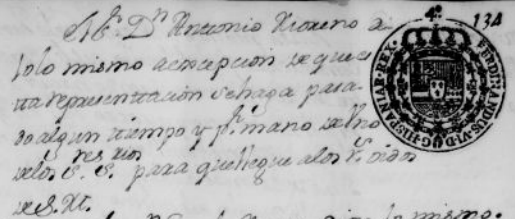 134
El Sr. Dn Antonio Moreno di
jo lo mismo a excepcion de que es
ta representacion se haga pasa-
do algun tiempo y pr. mano de uno
de los SS.res para que llegue a los Rs. oidos
de S. M.
lo mismo.
FERDINANDUS VI D G HISPANIAR REX